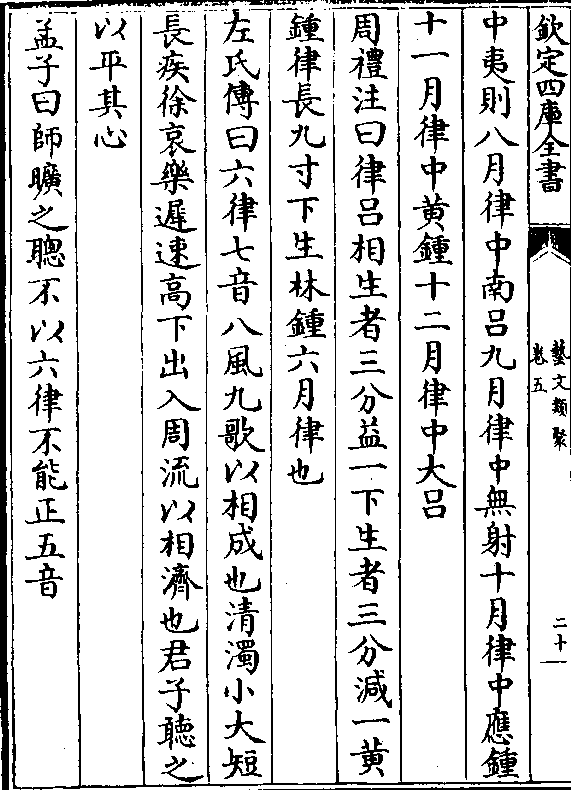 欽定四庫全書
藝文類聚
卷五
二十
中夷則八月律中南呂九月律中無射十月律中應鍾
十一月律中黄鍾十二月律中大呂
周禮注曰律呂相生者三分益一下生者三分減一黄
鍾律長九寸下生林鍾六月律也
左氏傳曰六律七音八風九歌以相成也清濁小大短
長疾徐哀樂遲速高下出入周流以相濟也君子聽之
以平其心
孟子曰師曠之聰不以六律不能正五音